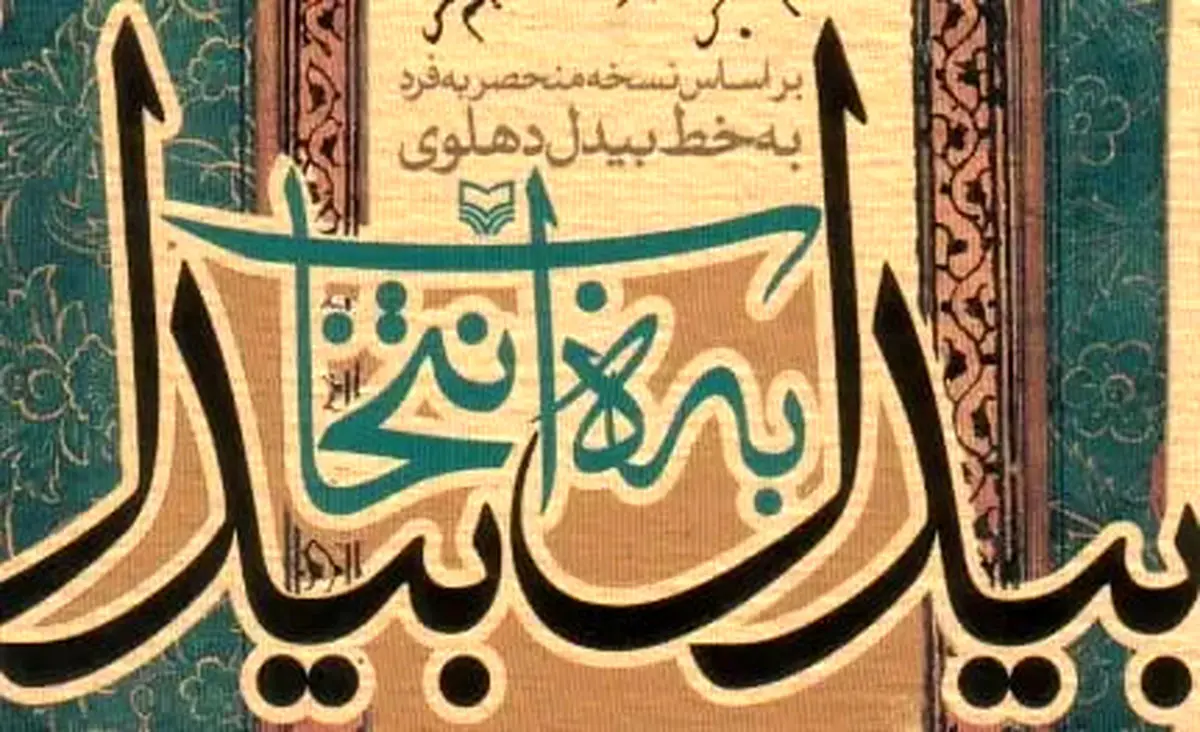 بر اساس نسخه منحصر به فرد
به خط بیدل دهلوی
بیدل به انتخاب بیدل